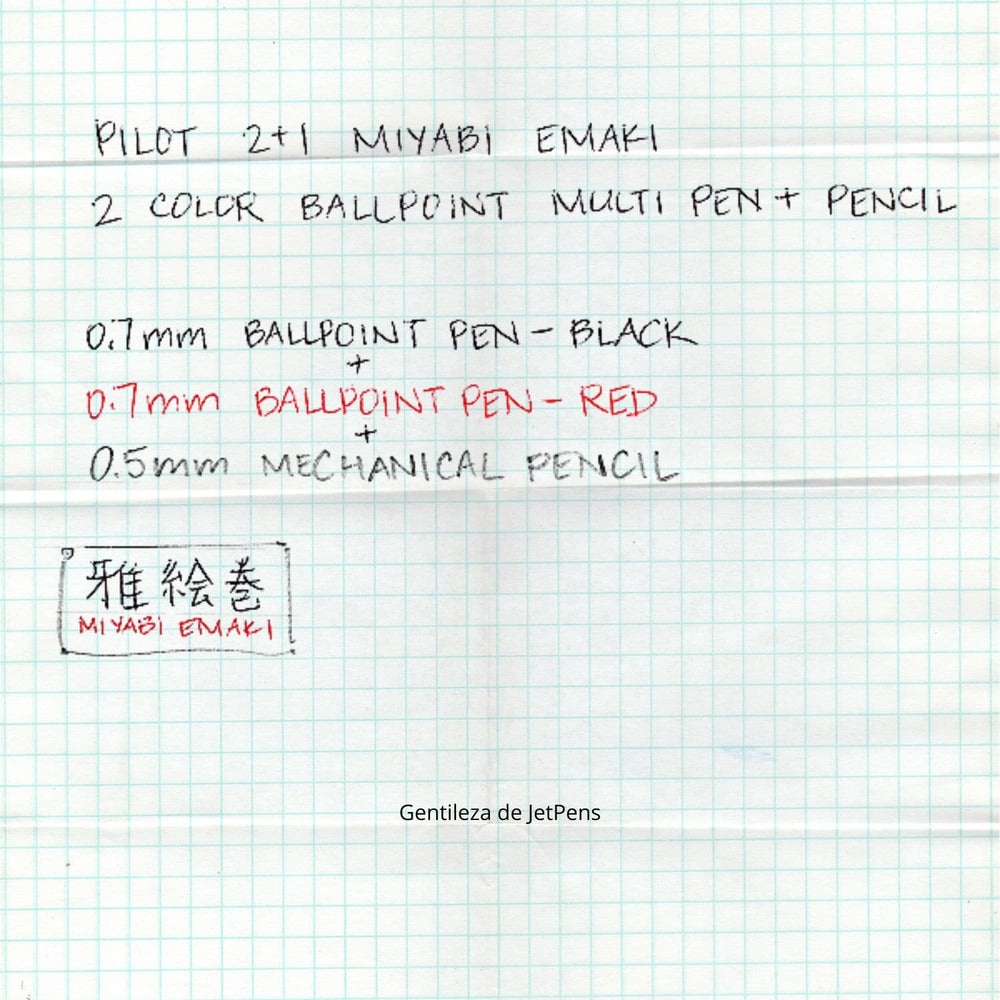 PILOT 2+1 MIYABI EMAKI
2 COLOR BALLPOINT MULTI PEN + PENCIL
0.7mm BALLPOINT PEN - BLACK
+
0.7mm BALLPOINT PEN - RED
+
0.5mm MECHANICAL PENCIL
雅絵巻
MIYABI EMAKI
Gentileza de JetPens